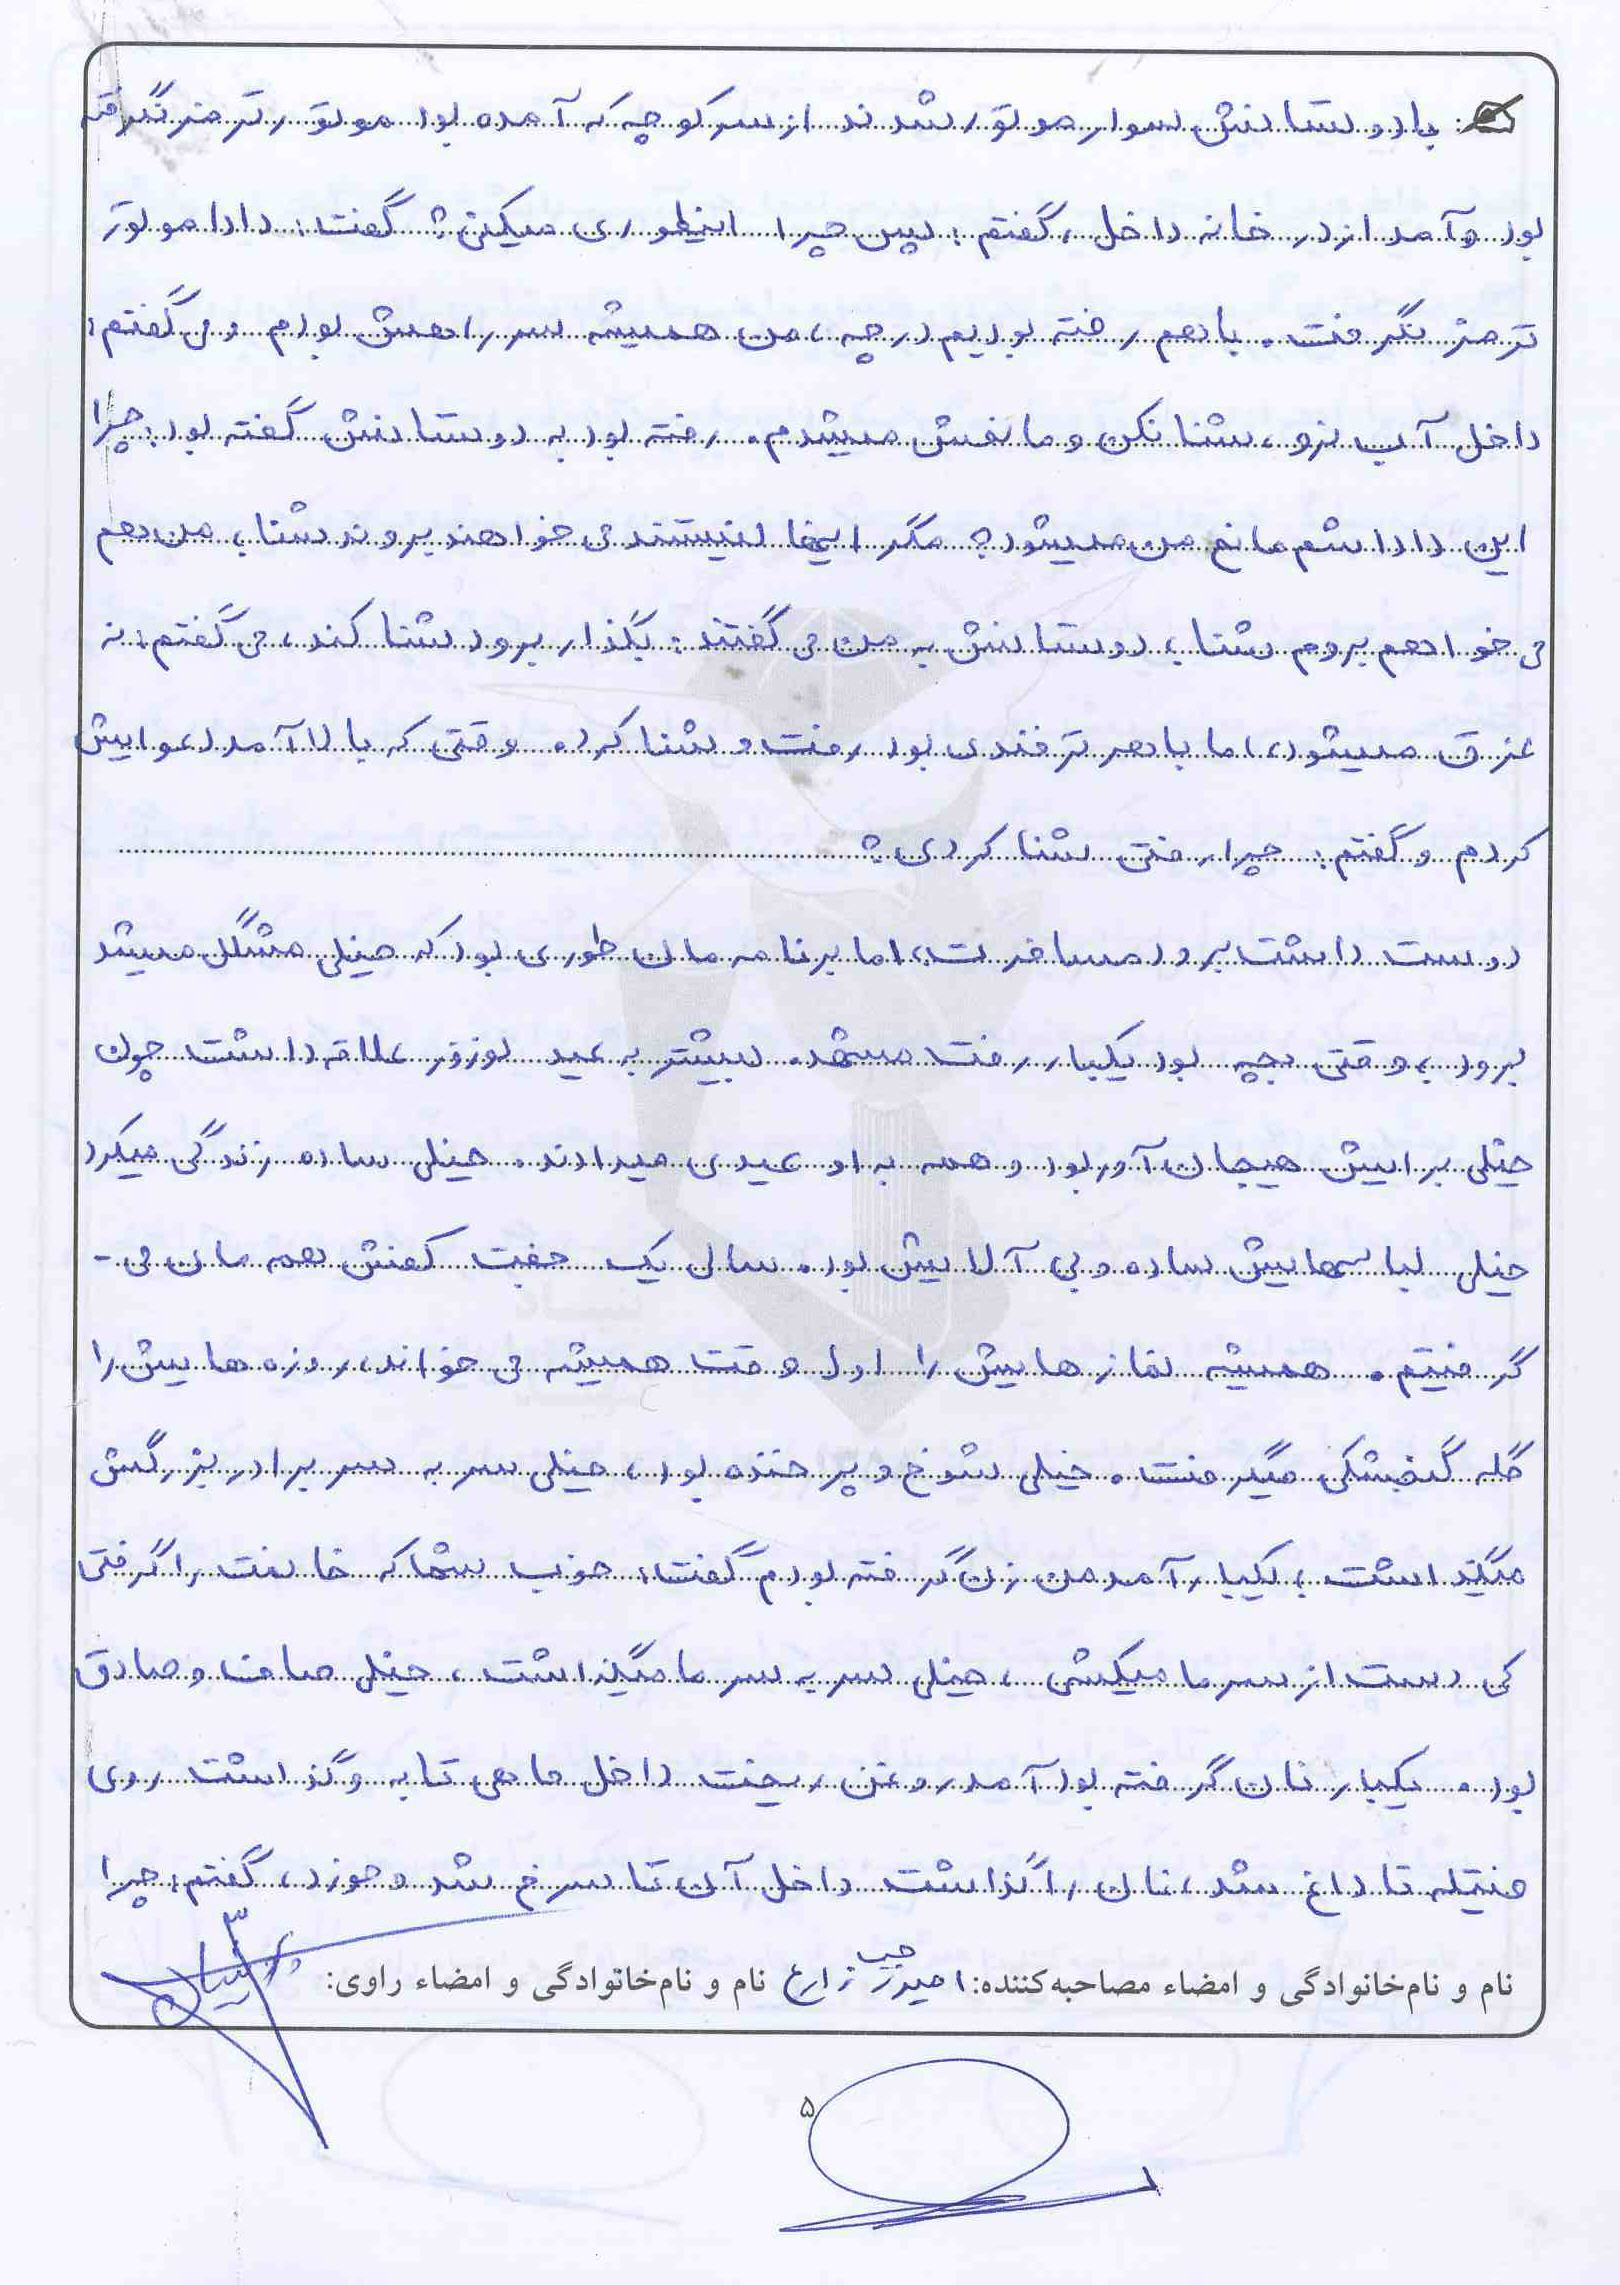 با دوستانش سوار موتور شدند از سر کوچه که آمده بود موتور ترمز نگرفته
بود و آمد از در خانه داخل، گفتم: پس چرا اینطوری میکنی؟ گفت: دادا موتور
ترمز نگرفت. باهم رفته بودیم در چه، من همیشه سر راهش بودم و می گفتم:
داخل آب نرو، شنا نکن و مانعش میشدم. رفته بود به دوستانش گفته بود: چرا
این داداشم مانع من میشود؟ مگر اینها نیستند می خواهند بروند شنا، من هم
می خواهم بروم شنا، دوستانش به من می گفتند: بگذار برود شنا کند، می گفتم: نه
غرق میشود، اما با هر ترفندی بود رفت و شنا کرد. وقتی که بالا آمد دعوایش
کردم و گفتم: چرا رفتی شنا کردی؟
دوست داشت برود مسافرت، اما برنامه مان طوری بود که خیلی مشگل میشد
برود، وقتی بچه بود یکبار رفت مشهد. بیشتر به عید نوروز علاقه داشت چون
خیلی برایش هیجان آور بود و همه به او عیدی میدادند. خیلی ساده زندگی میکرد
خیلی لباسهایش ساده و بی آلایش بود. سالی یک جفت کفش همه مان می-
گرفتیم. همیشه نمازهایش را اول وقت همیشه می خواند، روزه هایش را
کله گنجشکی میگرفت. خیلی شوخ و پر خنده بود، خیلی سر به سر برادر بزرگش
میگذاشت، یکبار آمد من زن گرفته بودم گفت: خوب شما که خانمت را گرفتی
کی دست از سر ما میکشی، خیلی سر به سر ما میگذاشت، خیلی صاف و صادق
بود. یکبار نان گرفته بود آمد روغن ریخت داخل ماهی تابه و گذاشت روی
فتیله تا داغ شد، نان را گذاشت داخل آن تا سرخ شد و خورد، گفتم: چرا
نام و نام‌خانوادگی و امضاء مصاحبه‌کننده: زارع نام و نام‌خانوادگی و امضاء راوی:
۵